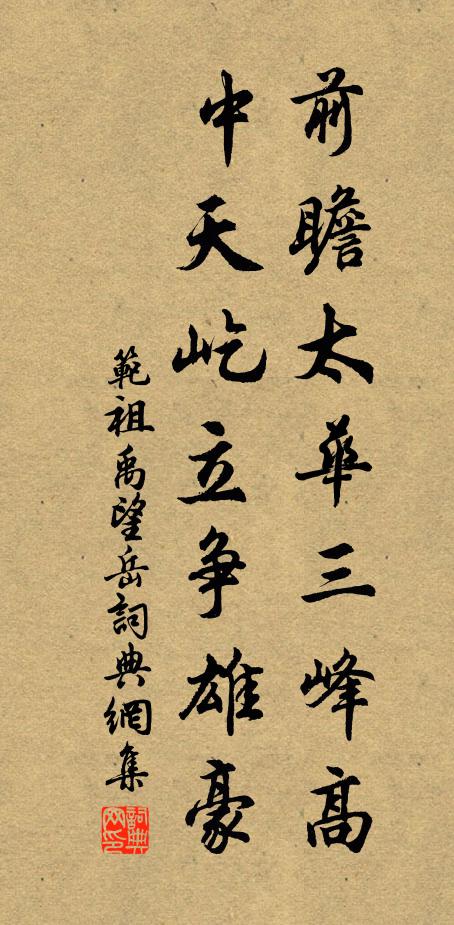 前瞻太華三峰高
中天屹立爭雄豪
範祖禹望岳詞典網集
詞典網印